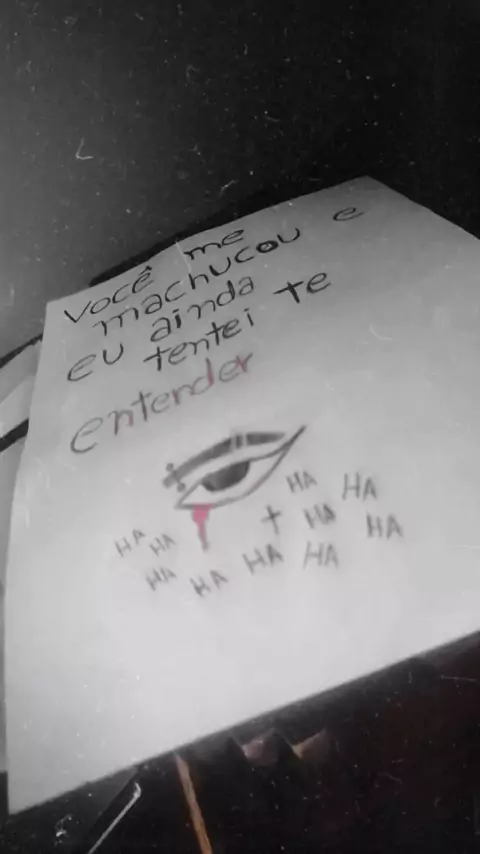 Você me
machucou e
eu ainda
tentei te
entender
HA HA
HA HA
HA HA
HA HA HA HA